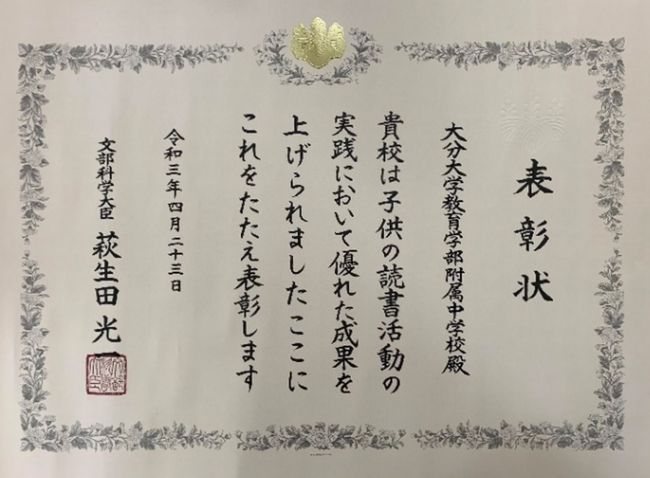 表彰状
大分大学教育学部附属中学校殿
貴校は子供の読書活動の
実践において優れた成果を
上げられましたここに
これをたたえ表彰します
令和三年四月二十三日
文部科学大臣 萩生田光一